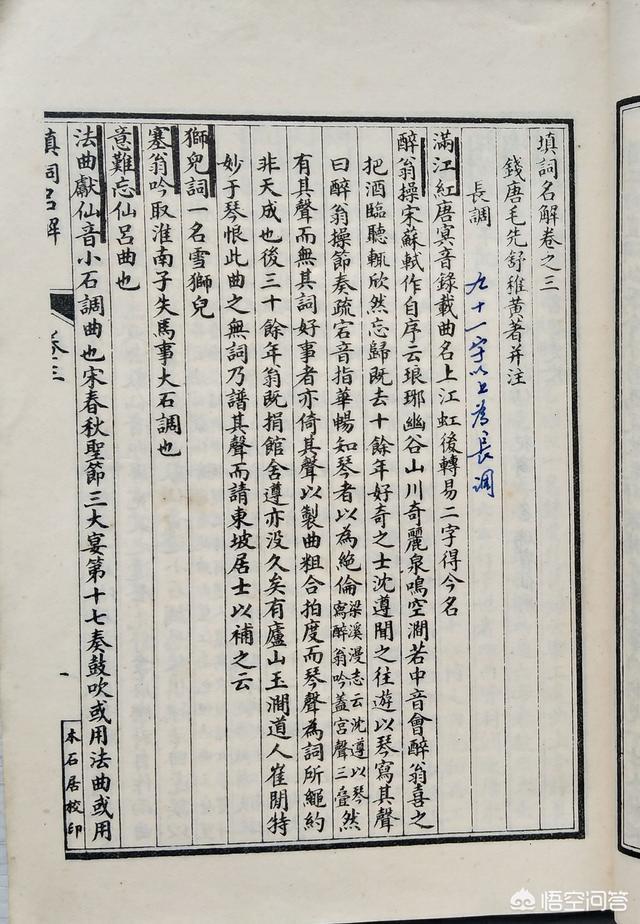 填詞名解卷之三
錢唐毛先舒稚黃著并注
長調
九十一字以上為長調
滿江紅唐冥音錄載曲名上江虹後轉易二字得今名
醉翁操宋蘇軾作自序云琅琊幽谷山川奇麗泉鳴空澗若中音會醉翁喜之
把酒臨聽輒欣然忘歸既去十餘年好奇之士沈遵聞之往遊以琴寫其聲
曰醉翁操節奏疏宕音指華暢知琴者以為絕倫梁溪漫志云沈遵以琴寫醉翁吟蓋宮聲三疊然
有其聲而無其詞好事者亦倚其聲以製曲粗合拍度而琴聲為詞所繩約
非天成也後三十餘年翁既捐館舍遵亦没久矣有廬山玉澗道人崔閒特
妙于琴恨此曲之無詞乃譜其聲而請東坡居士以補之云
獅兒詞一名雪獅兒
塞翁吟取淮南子失馬事大石調也
意難忘仙呂曲也
法曲獻仙音小石調曲也宋春秋聖節三大宴第十七奏鼓吹或用法曲或用
填詞名解
卷三
本石居校印
悟空问答